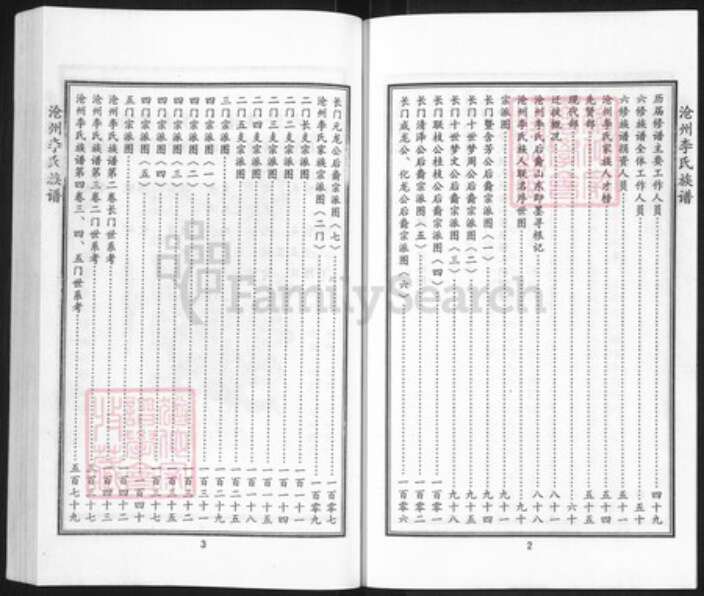 沧州李氏族谱
历届修谱主要工作人员 四十九
六修族谱全体工作人员 五十
六修族谱捐资人员 五十一
沧州李氏家族人才榜 五十四
先贤部 五十五
现代部 六十
迁徙概况 八十一
沧州李氏后裔山东即墨寻根记 八十八
沧州李氏族人联名序世图 九十
宗派图 九十一
长门聪舍芳公后裔宗派图（一） 九十四
长门十世梦周公后裔宗派图（二） 九十五
长门十世梦文公后裔宗派图（三） 九十八
长门联枝公桂枝公后裔宗派图（四） 一百
长门清泽公后裔宗派图（五） 一百零二
长门成龙公、化龙公后裔宗派图（六） 一百零六
2
长门元龙公后裔宗派图（七） 一百零七
沧州李氏家族宗派图（二门） 一百零九
二门长支宗派图 一百一十
二门二支宗派图 一百一十一
二门三支宗派图 一百一十四
二门四支宗派图 一百一十五
二门五支宗派图 一百一十八
三门宗派图 一百二十五
四门宗派图（一） 一百二十九
四门宗派图（二） 一百三十一
四门宗派图（三） 一百三十二
四门宗派图（四） 一百三十五
四门宗派图（五） 一百四十
五门宗派图 一百四十二
沧州李氏族谱第二卷长门世系考 一百四十三
沧州李氏族谱第三卷二门世系考
沧州李氏族谱第四卷三、四、五门世系考 五百七十九
3
沧州李氏族谱
FamilySearch